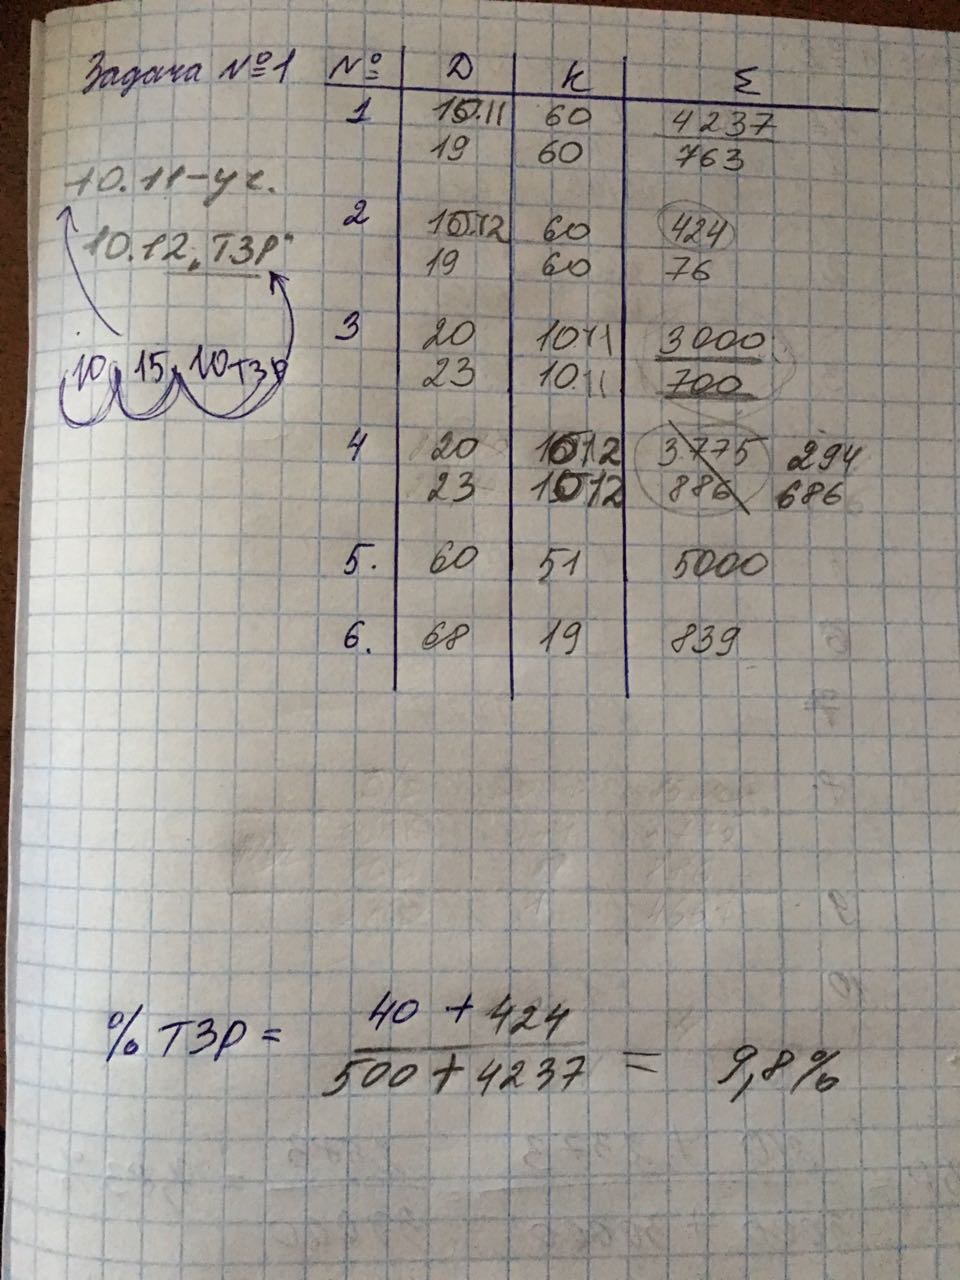 Задача №1 № Д К Σ
1 10.11 60 4237
19 60 763
10.11-уч.
2 10.12 60 424
10.12 „ТЗР"
19 60 76
3 20 10.11 3000
10 15 10 ТЗР
23 10.11 700
4 20 10.12 3775 294
23 10.12 886 686
5. 60 51 5000
6. 68 19 839
% ТЗР = 40 + 424 / 500 + 4237 = 9,8%